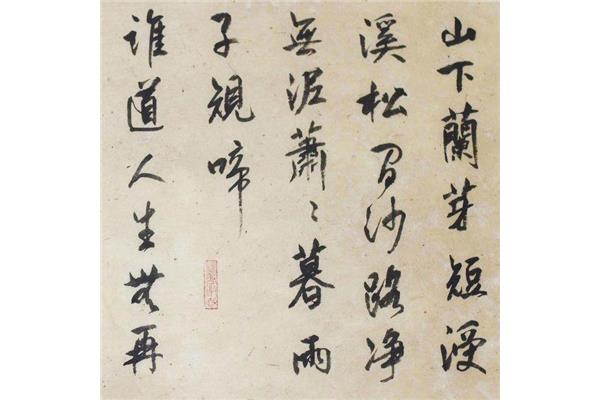 山下蘭芽短浸
溪松間沙路净
無泥蕭〻暮雨
子規啼
誰道人生無再